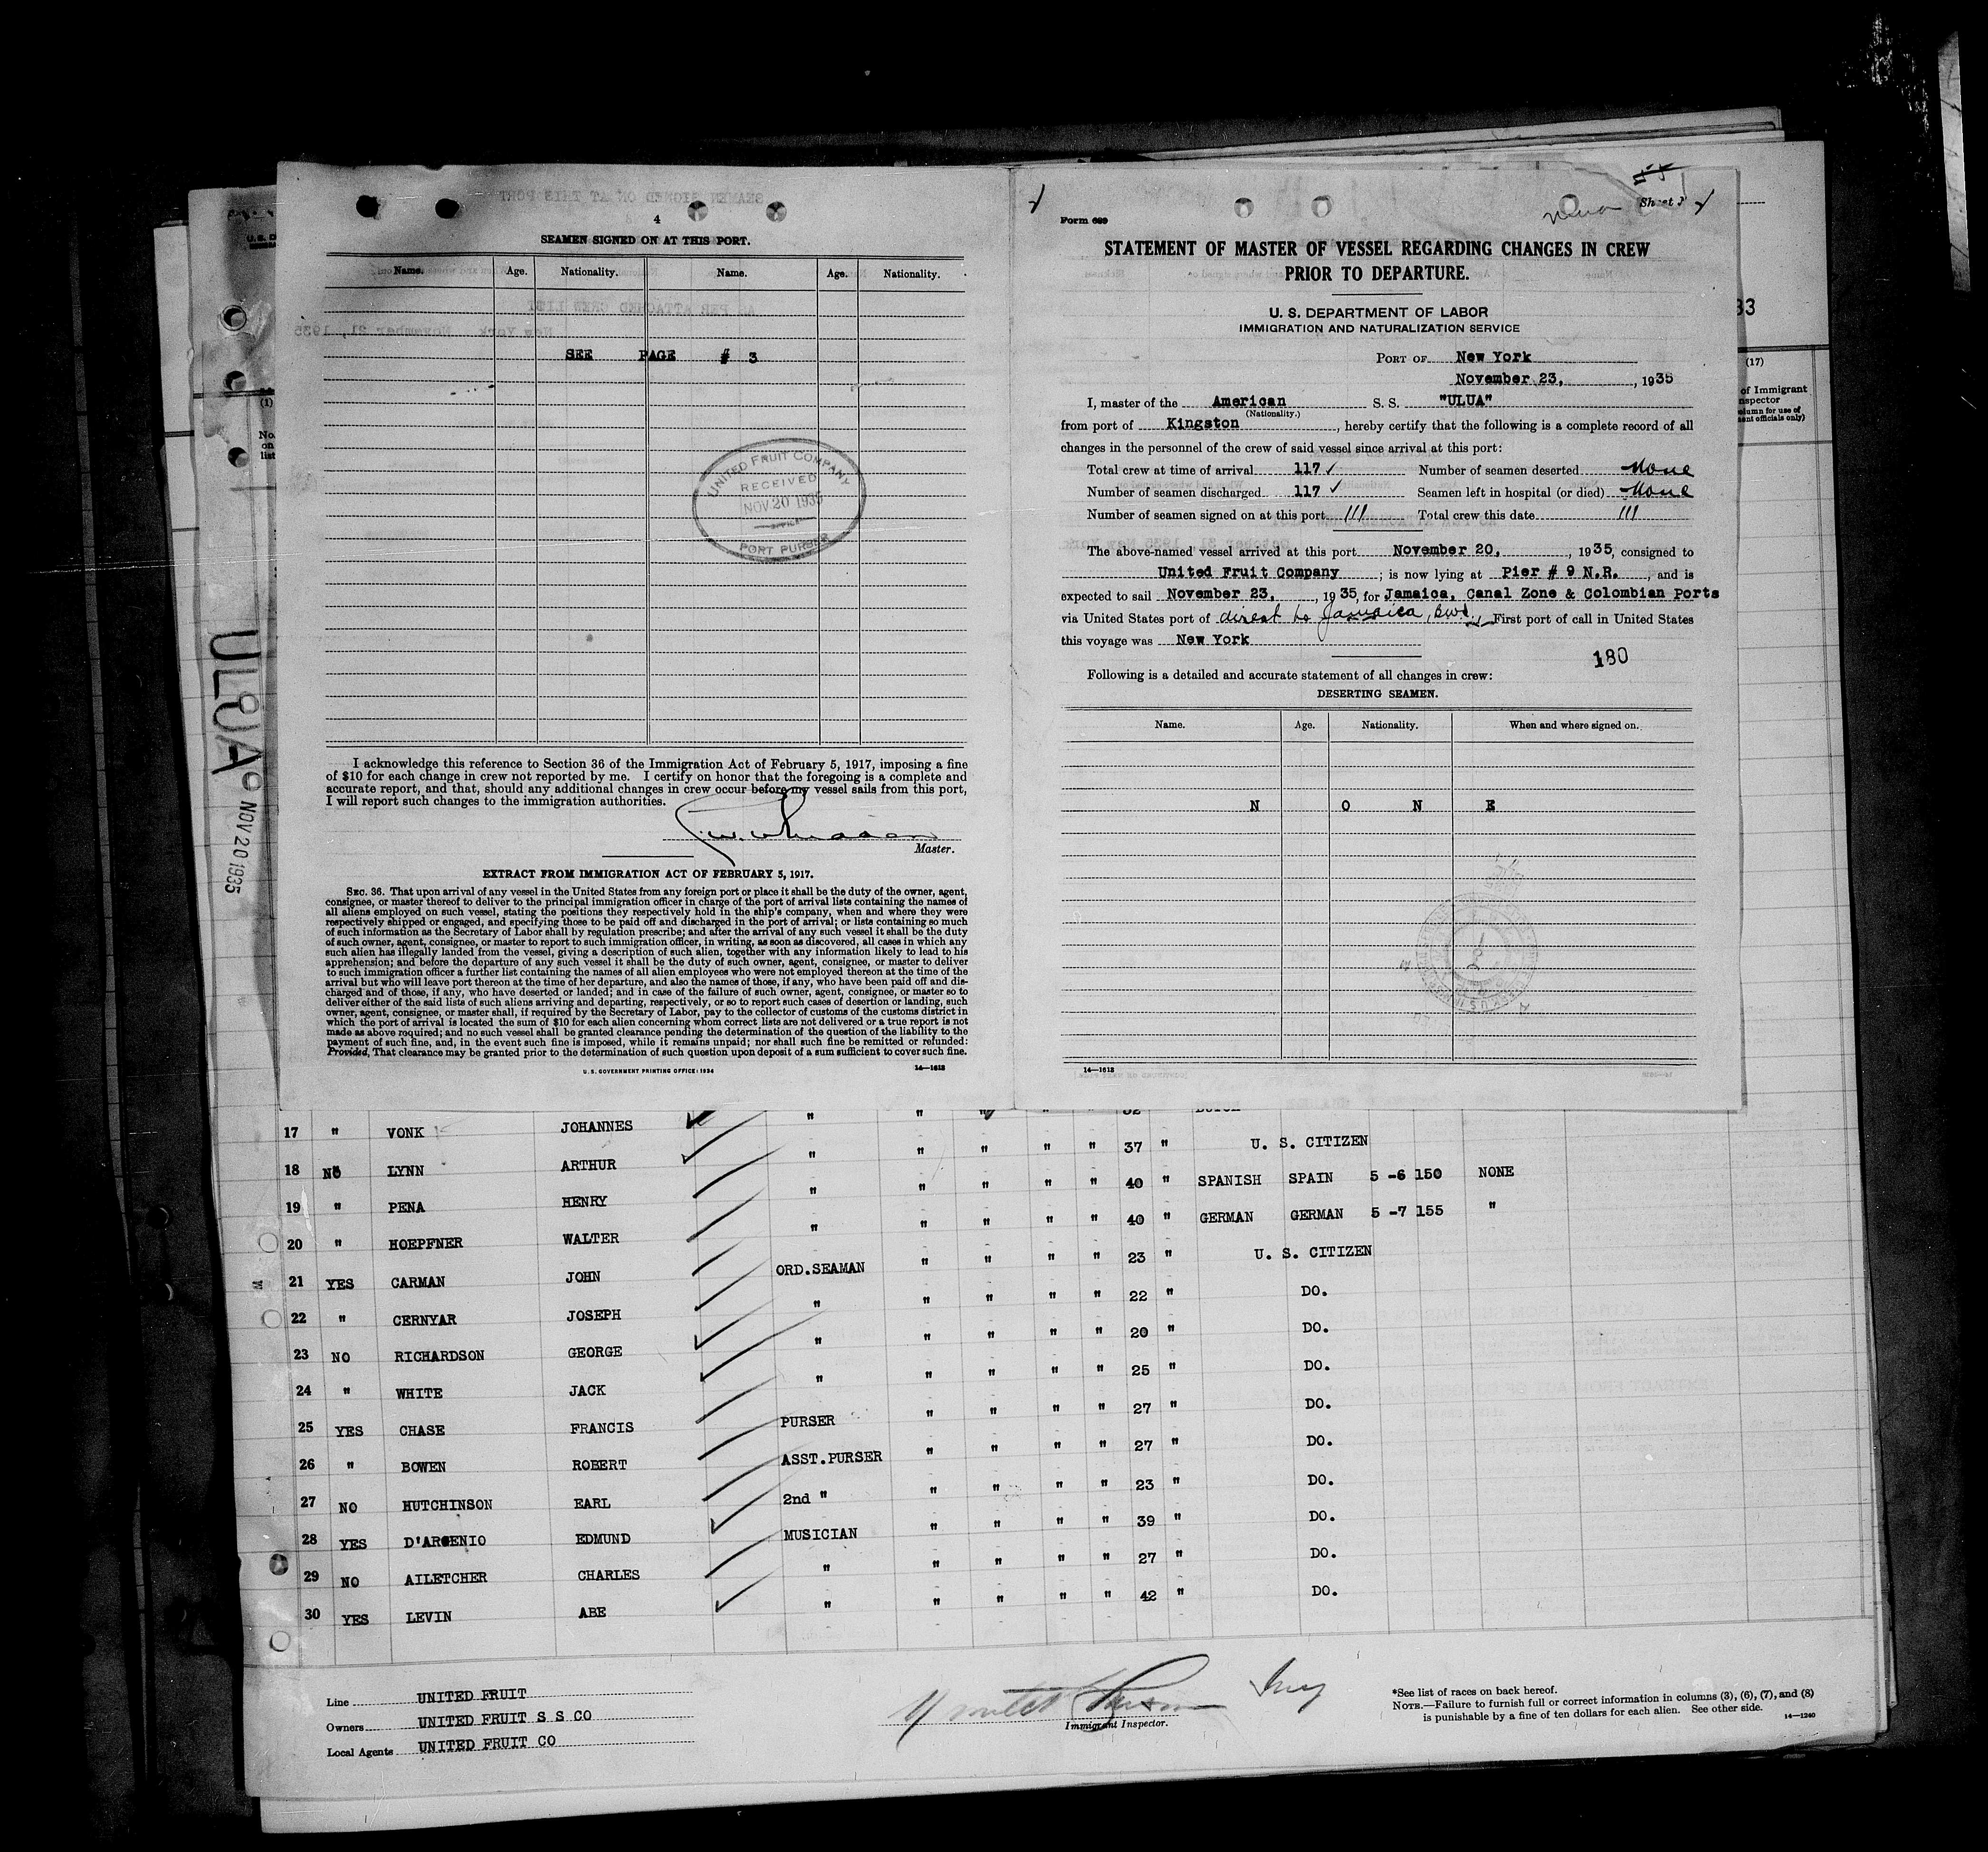 4
SEAMEN SIGNED ON AT THIS PORT.
Name. Age. Nationality. Name. Age. Nationality.
SEE PAGE # 3
UNITED FRUIT COMPANY
RECEIVED
NOV 20 1935
OFFICE
PORT PURSER
I acknowledge this reference to Section 36 of the Immigration Act of February 5, 1917, imposing a fine
of $10 for each change in crew not reported by me. I certify on honor that the foregoing is a complete and
accurate report, and that, should any additional changes in crew occur before my vessel sails from this port,
I will report such changes to the immigration authorities.
Master.
EXTRACT FROM IMMIGRATION ACT OF FEBRUARY 5, 1917.
SEC. 36. That upon arrival of any vessel in the United States from any foreign port or place it shall be the duty of the owner, agent,
consignee, or master thereof to deliver to the principal immigration officer in charge of the port of arrival lists containing the names of
all aliens employed on such vessel, stating the positions they respectively hold in the ship's company, when and where they were
respectively shipped or engaged, and specifying those to be paid off and discharged in the port of arrival; or lists containing so much
of such information as the Secretary of Labor shall by regulation prescribe; and after the arrival of any such vessel it shall be the duty
of such owner, agent, consignee, or master to report to such immigration officer, in writing, as soon as discovered, all cases in which any
such alien has illegally landed from the vessel, giving a description of such alien, together with any information likely to lead to his
apprehension; and before the departure of any such vessel it shall be the duty of such owner, agent, consignee, or master to deliver
to such immigration officer a further list containing the names of all alien employees who were not employed thereon at the time of the
arrival but who will leave port thereon at the time of her departure, and also the names of those, if any, who have been paid off and dis-
charged and of those, if any, who have deserted or landed; and in case of the failure of such owner, agent, consignee, or master so to
deliver either of the said lists of such aliens arriving and departing, respectively, or so to report such cases of desertion or landing, such
owner, agent, consignee, or master shall, if required by the Secretary of Labor, pay to the collector of customs of the customs district in
which the port of arrival is located the sum of $10 for each alien concerning whom correct lists are not delivered or a true report is not
made as above required; and no such vessel shall be granted clearance pending the determination of the question of the liability to the
payment of such fine, and, in the event such fine is imposed, while it remains unpaid; nor shall such fine be remitted or refunded:
Provided, That clearance may be granted prior to the determination of such question upon deposit of a sum sufficient to cover such fine.
U. S. GOVERNMENT PRINTING OFFICE: 1934 14—1618
Form 689 Sheet
STATEMENT OF MASTER OF VESSEL REGARDING CHANGES IN CREW
PRIOR TO DEPARTURE.
U. S. DEPARTMENT OF LABOR
IMMIGRATION AND NATURALIZATION SERVICE
PORT OF New York
November 23, , 1935
I, master of the American S. S. "ULUA"
(Nationality.)
from port of Kingston , hereby certify that the following is a complete record of all
changes in the personnel of the crew of said vessel since arrival at this port:
Total crew at time of arrival 117 ✓ Number of seamen deserted None
Number of seamen discharged 117 ✓ Seamen left in hospital (or died) None
Number of seamen signed on at this port 111 Total crew this date 111
The above-named vessel arrived at this port November 20, , 1935, consigned to
United Fruit Company ; is now lying at Pier # 9 N.R. , and is
expected to sail November 23, , 1935, for Jamaica, Canal Zone & Colombian Ports
via United States port of direct to Jamaica, BWI. First port of call in United States
this voyage was New York
180
Following is a detailed and accurate statement of all changes in crew:
DESERTING SEAMEN.
Name. Age. Nationality. When and where signed on.
N O N E
14—1618
33
(17)
of Immigrant
nspector
olumn for use of
ent officials only)
U. S. D
(1)
No.
on
list
ULUA NOV 20 1935
17 " VONK JOHANNES " " " " " 32
18 NO LYNN ARTHUR " " " " " 37 " U. S. CITIZEN
19 " PENA HENRY " " " " " 40 " SPANISH SPAIN 5 -6 150 NONE
20 " HOEPFNER WALTER " " " " " 40 " GERMAN GERMAN 5 -7 155 "
21 YES CARMAN JOHN ORD.SEAMAN " " " " 23 " U. S. CITIZEN
22 " CERNYAR JOSEPH " " " " " 22 " DO.
23 NO RICHARDSON GEORGE " " " " " 20 " DO.
24 " WHITE JACK " " " " " 25 " DO.
25 YES CHASE FRANCIS PURSER " " " " 27 " DO.
26 " BOWEN ROBERT ASST.PURSER " " " " 27 " DO.
27 NO HUTCHINSON EARL 2nd " " " " " 23 " DO.
28 YES D'ARGENIO EDMUND MUSICIAN " " " " 39 " DO.
29 NO AILETCHER CHARLES " " " " " 27 " DO.
30 YES LEVIN ABE " " " " " 42 " DO.
Line UNITED FRUIT
Owners UNITED FRUIT S S CO
Local Agents UNITED FRUIT CO
Immigrant Inspector.
*See list of races on back hereof.
NOTE.—Failure to furnish full or correct information in columns (3), (6), (7), and (8)
is punishable by a fine of ten dollars for each alien. See other side. 14—1240